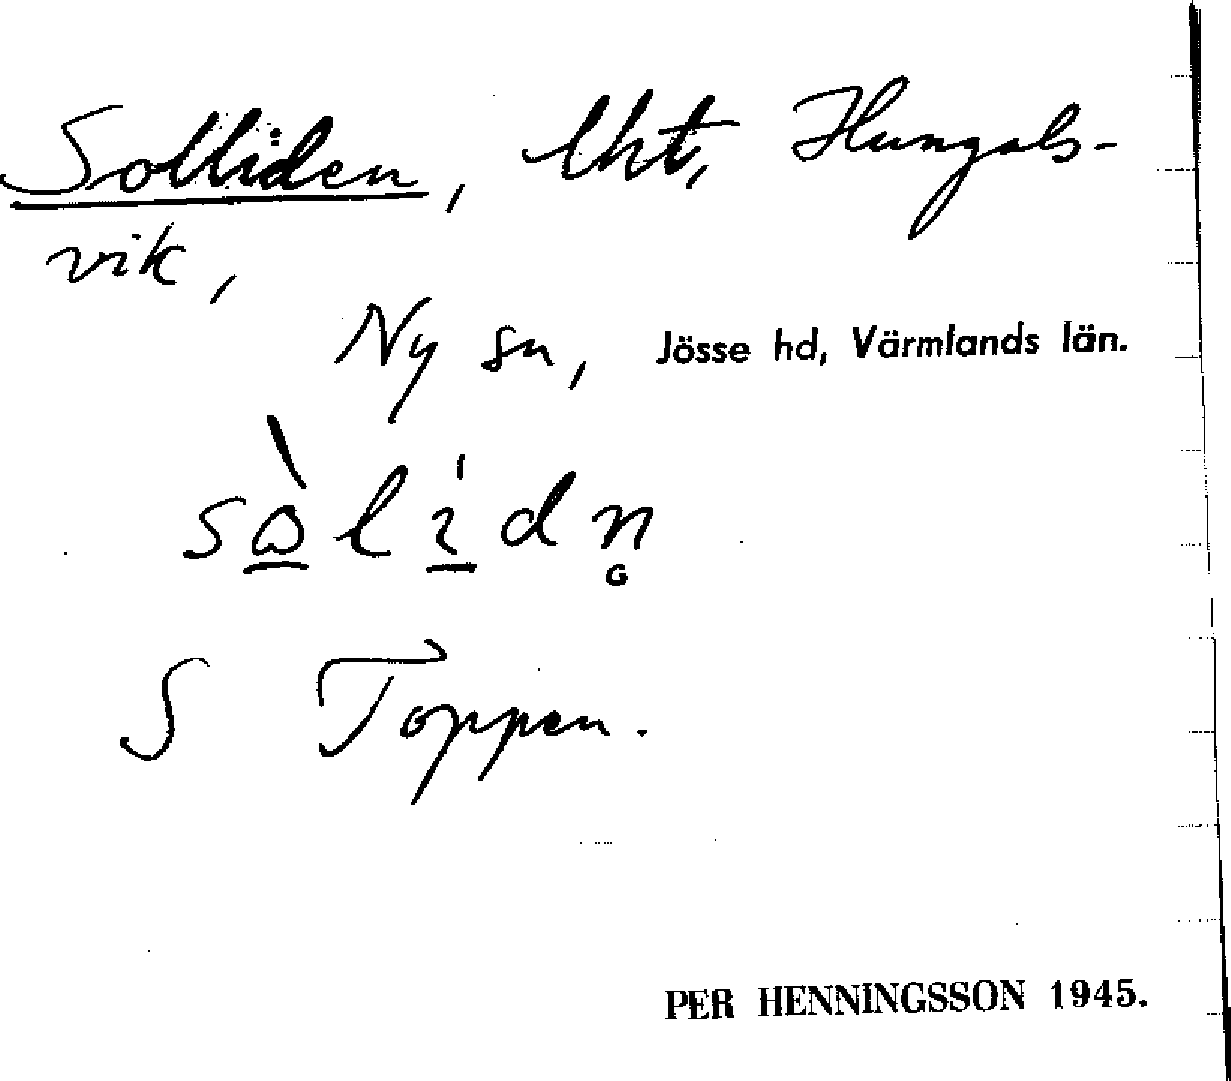 Solliden, lht, Hungals-
vik,
Ny sn, Jösse hd, Värmlands län.
S Toppen.
PER HENNINGSSON 1945.